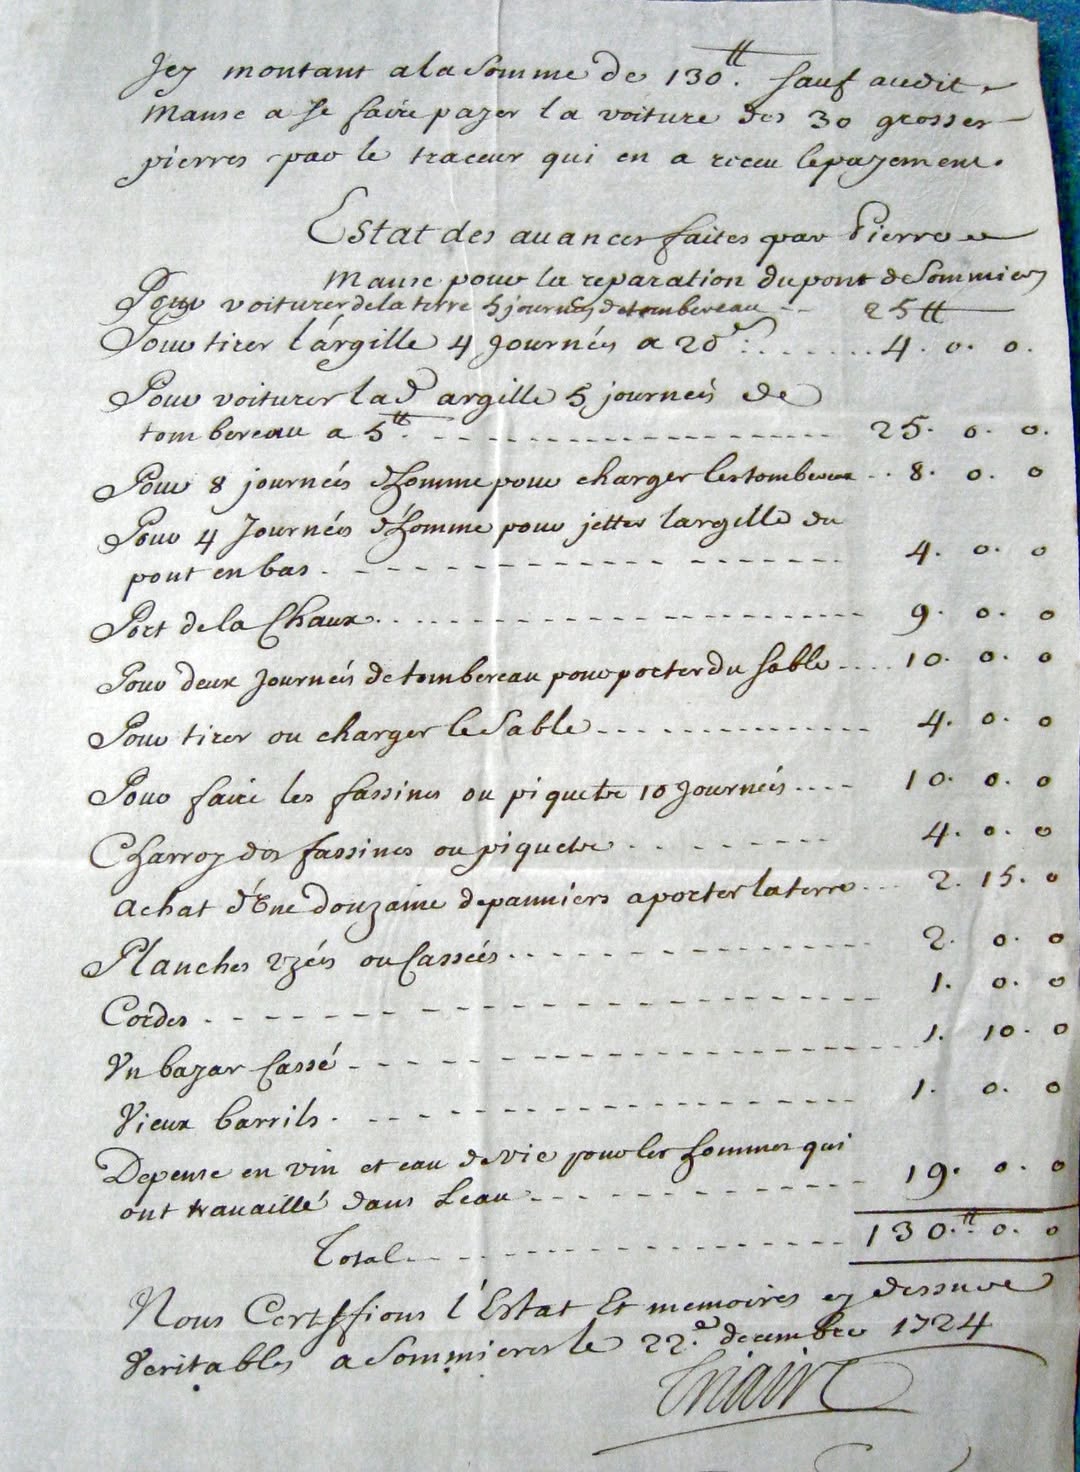 Jcy montant a la Somme de 130.tt Sauf audit
Mause a se faire payer la voiture des 30 grosses
pierres par le traceur qui en a receu le payement.
Estat des auances faites par Pierre
Mause pour la reparation du pont de Sommieres
Pour voiturer de la terre 5 journées de tombereau - - 25 tt
Pour tirer l'argille 4 Journées a 20 s : . . . . . . . 4. 0. 0.
Pour voiturer lad argille 5 journeés de
tombereau a 5tt. - - - - - - - - - - - - - - - - 25. 0. 0.
Pour 8 journeés d'homme pour charger les tombereaux . . 8. 0. 0
Pour 4 Journeés d'homme pour jetter largille du
pont en bas . - - - - - - - - - - - - - - - - 4. 0. 0
Port de la Chaux . . - - - - - - - - - - - - - - - 9. 0. 0
Pour deux Journeés de tombereau pour porter du Sable - . . . 10. 0. 0
Pour tirer ou charger le Sable - - - - - - - - - - - - - 4. 0. 0
Pour faire les fassines ou piquets 10 Journeés . . - - 10. 0. 0
Charroy des fassines ou piquets . . - - - - - - 4. 0. 0
achat d'Une douzaine de panniers a porter la terre - - - 2. 15. 0
Planches uzeés ou Casseés . . - - - - - - - - - - - 2. 0. 0
Cordes . - - - - - - - - - - - - - - - - - - - 1. 0. 0
Vn bayar Cassé - - - - - - - - - - - - - - - - - 1. 10. 0
Vieux barrils . - - - - - - - - - - - - - - - - 1. 0. 0
Depense en vin et eau de vie pour les hommes qui
ont trauaillé dans Leau - - - - - - - - - - - - 19. 0. 0
Total - - - - - - - - - - - - - - - - 130.tt 0. 0
Nous Certiffions l'Estat Et memoires cy dessus
Veritables a Sommieres le 22.e decembre 1724